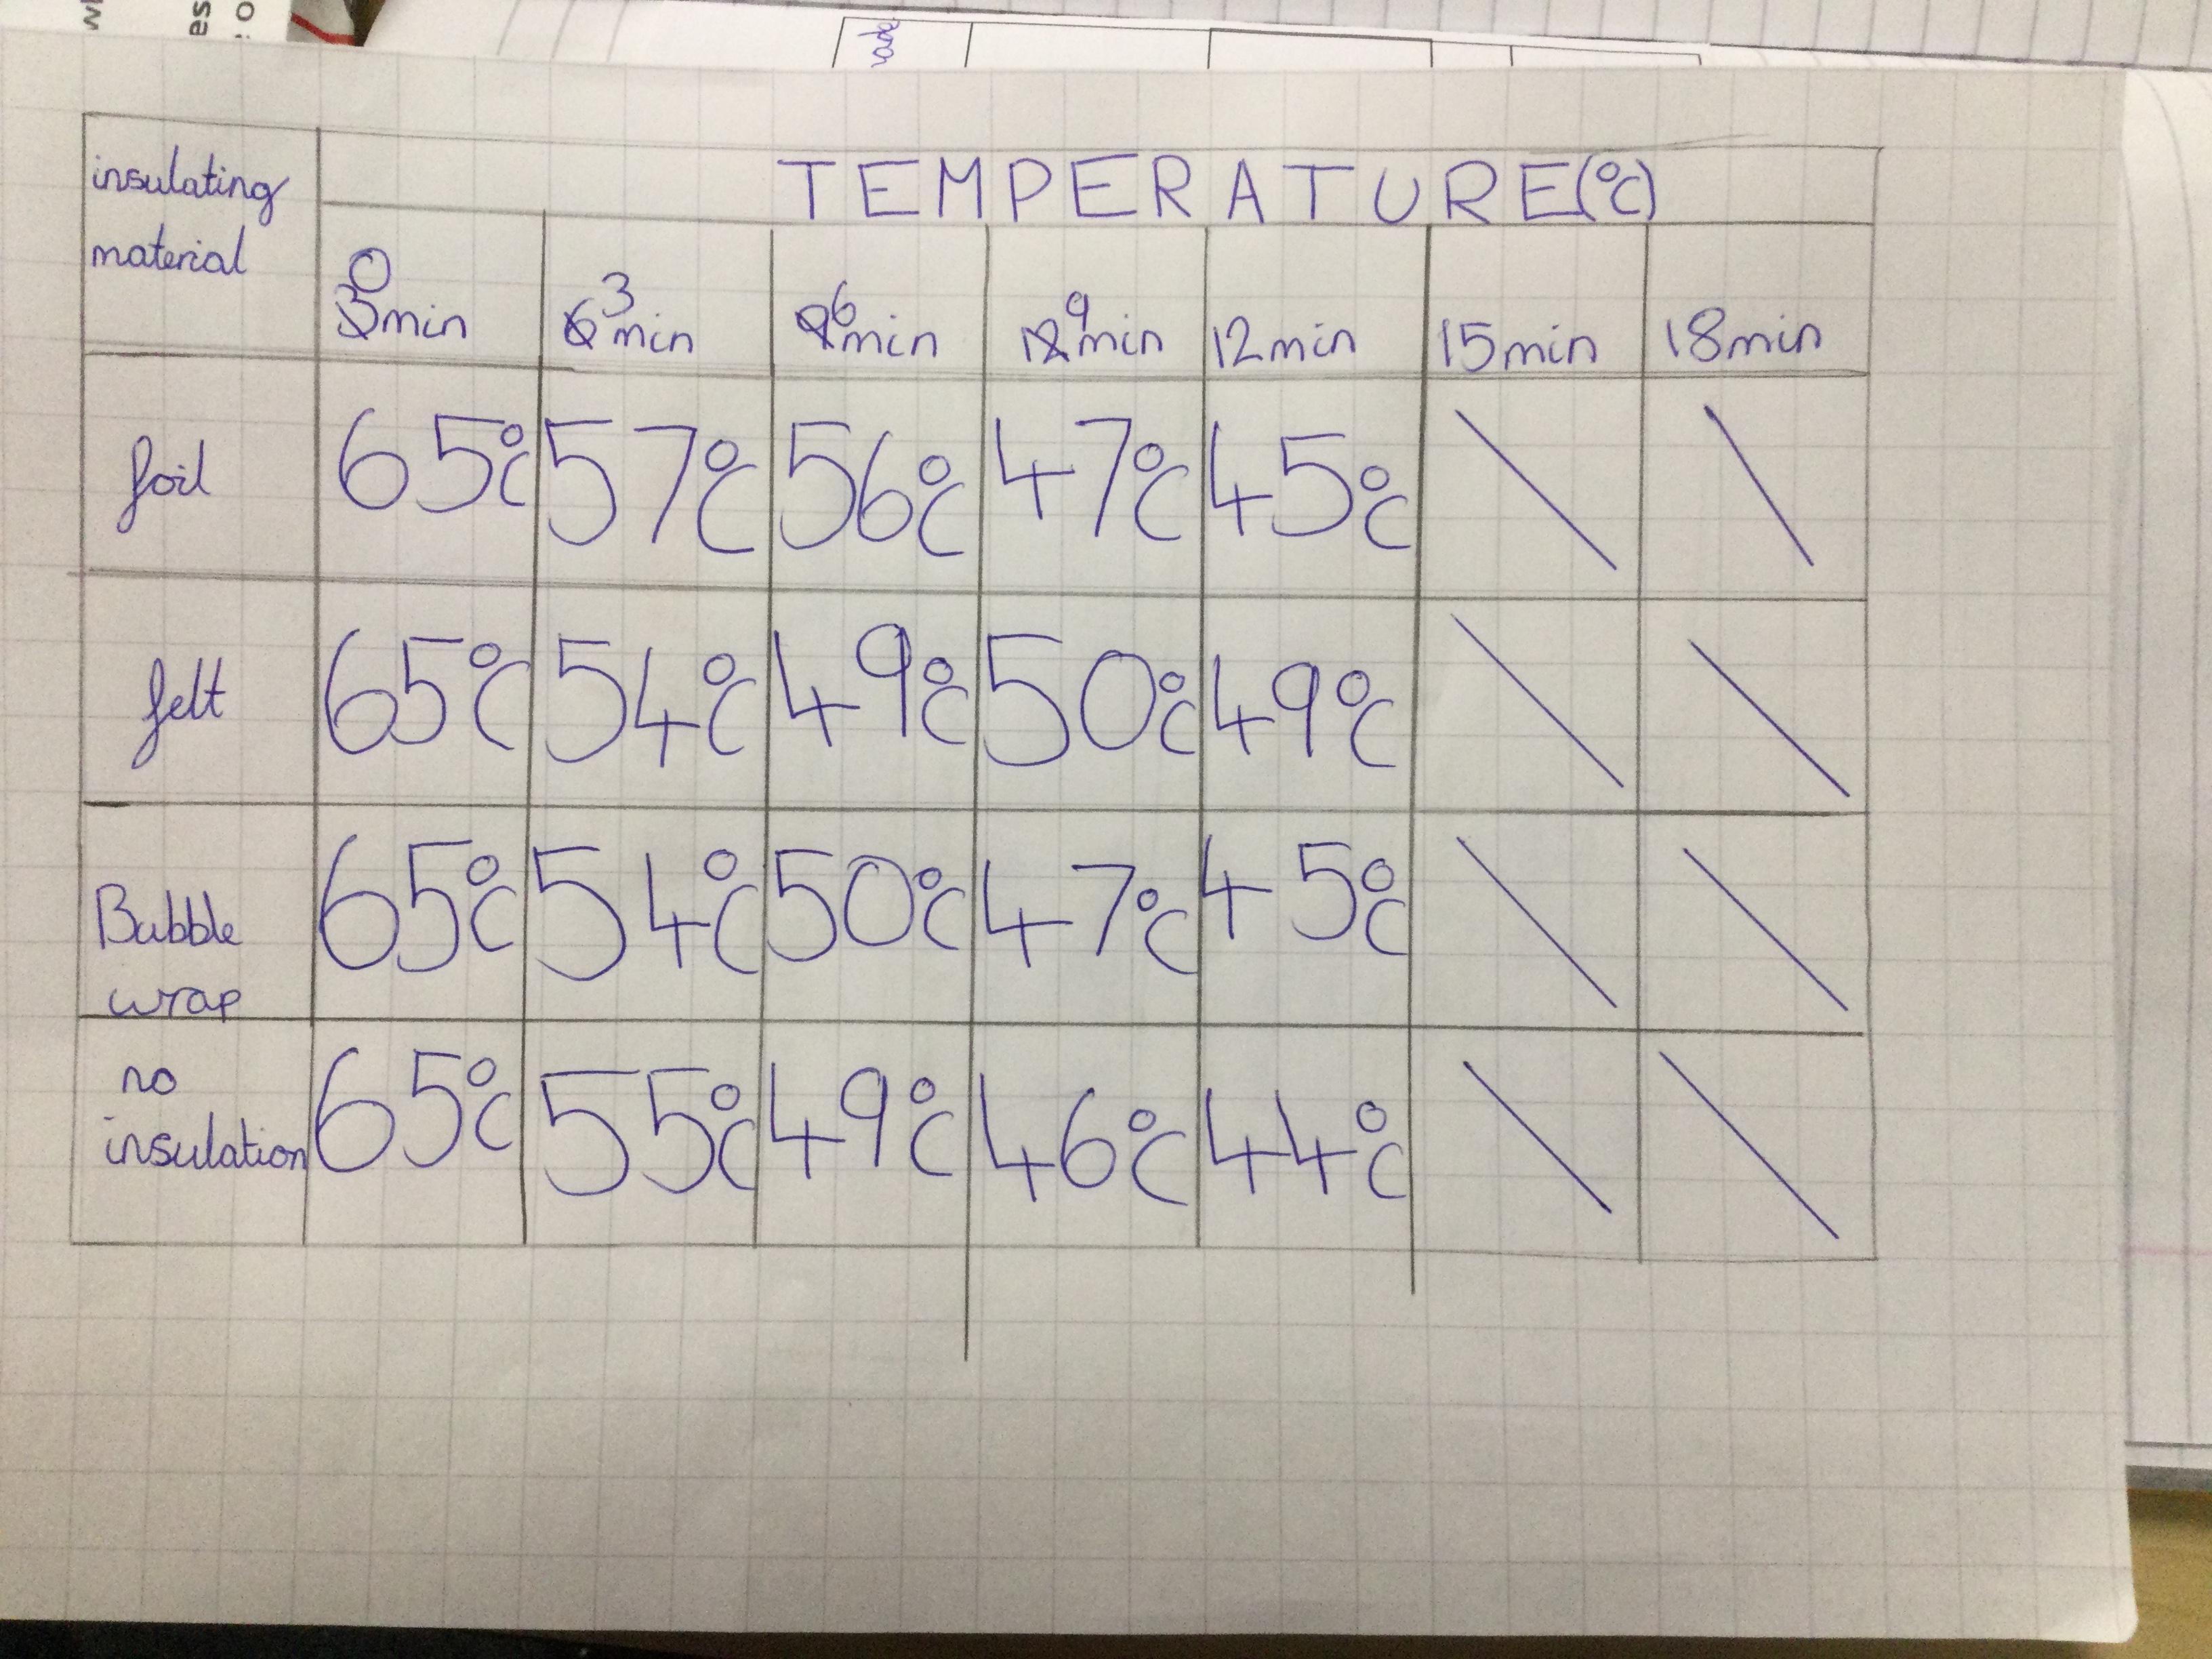 insulating
material
TEMPERATURE(°C)
0 min
3 min
6 min
9 min
12min
15min
18min
foil
65°C
57°C
56°C
47°C
45°C
felt
65°C
54°C
49°C
50°C
49°C
Bubble
wrap
65°C
54°C
50°C
47°C
45°C
no
insulation
65°C
55°C
49°C
46°C
44°C